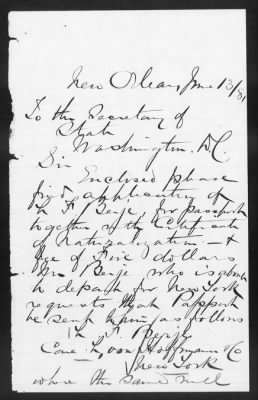 New Orleans, June 13/81
To the Secretary of
State
Washington, D.C.
Sir
Enclosed please
find application of
H. F. Benje for passport
together with Certificate
of Naturalization &
fee of Five dollars
Mr. Benje who is about
to depart for New York
requests that Passport
be sent him as follows
H. F. Benje
Care L. von Hoffmann & Co
New York
where the same will